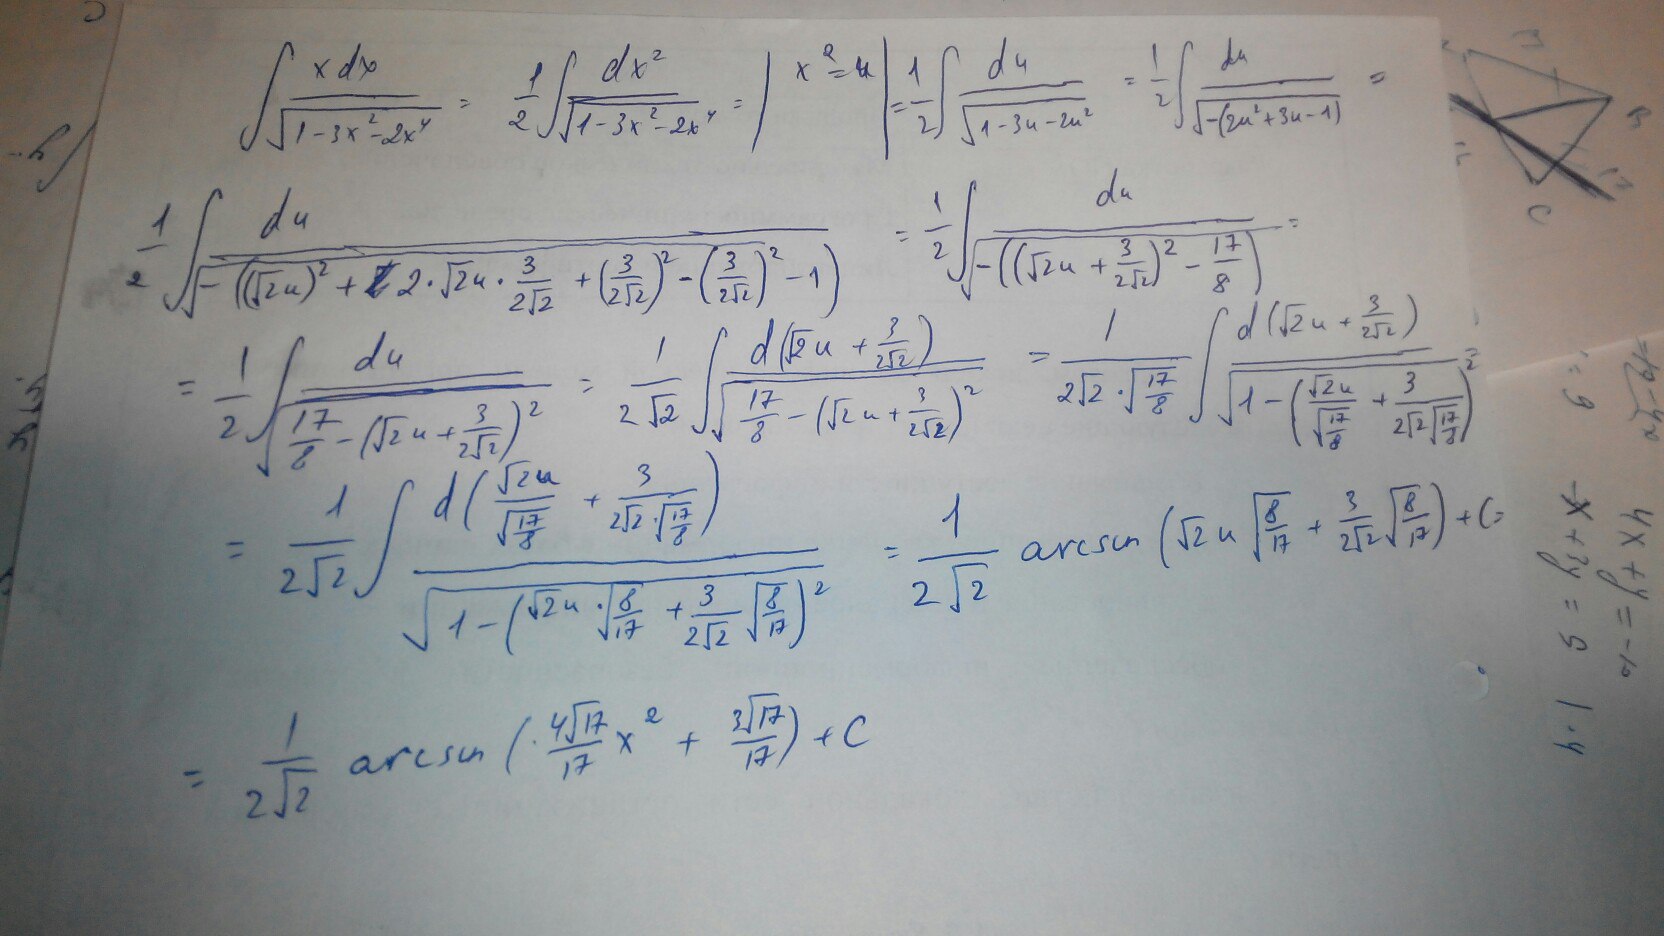 ∫ x dx / √(1-3x²-2x⁴) = 1/2 ∫ dx² / √(1-3x²-2x⁴) = | x² = u | = 1/2 ∫ du / √(1-3u-2u²) = 1/2 ∫ du / √(-(2u²+3u-1)) =
1/2 ∫ du / √(-((√2u)² + 2·√2u·3/(2√2) + (3/(2√2))² - (3/(2√2))² - 1)) = 1/2 ∫ du / √(-((√2u + 3/(2√2))² - 17/8)) =
= 1/2 ∫ du / √(17/8 - (√2u + 3/(2√2))²) = 1/(2√2) ∫ d(√2u + 3/(2√2)) / √(17/8 - (√2u + 3/(2√2))²) = 1/(2√2·√(17/8)) ∫ d(√2u + 3/(2√2)) / √(1 - (√2u/√(17/8) + 3/(2√2√(17/8)))²) =
= 1/(2√2) ∫ d(√2u/√(17/8) + 3/(2√2·√(17/8))) / √(1 - (√2u·√(8/17) + 3/(2√2) √(8/17))²) = 1/(2√2) arcsin (√2u √(8/17) + 3/(2√2) √(8/17)) + C =
= 1/(2√2) arcsin (4√17/17 x² + 3√17/17) + C